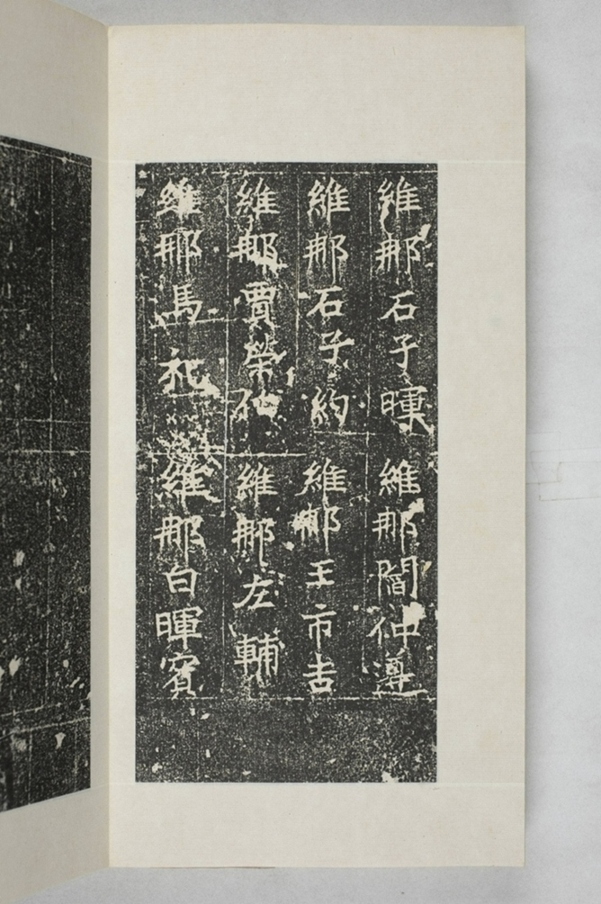 維那石子暉 維那閻仲遵
維那石子約 維那王市吉
維那賈榮 維那左輔
維那馬 維那白暉賓